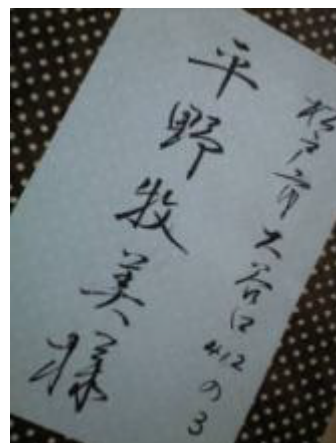 松戸市大谷口412の3
平野牧美様